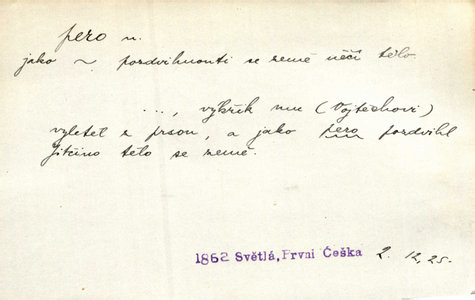 pero n.
jako ~ pozdvihnouti se země něčí tělo
..., výkřik mu (Vojtěchovi)
vyletěl z prsou, a jako pero pozdvihl
Jitčino tělo se země.
1862 Světlá, První Češka 2. 12, 25.